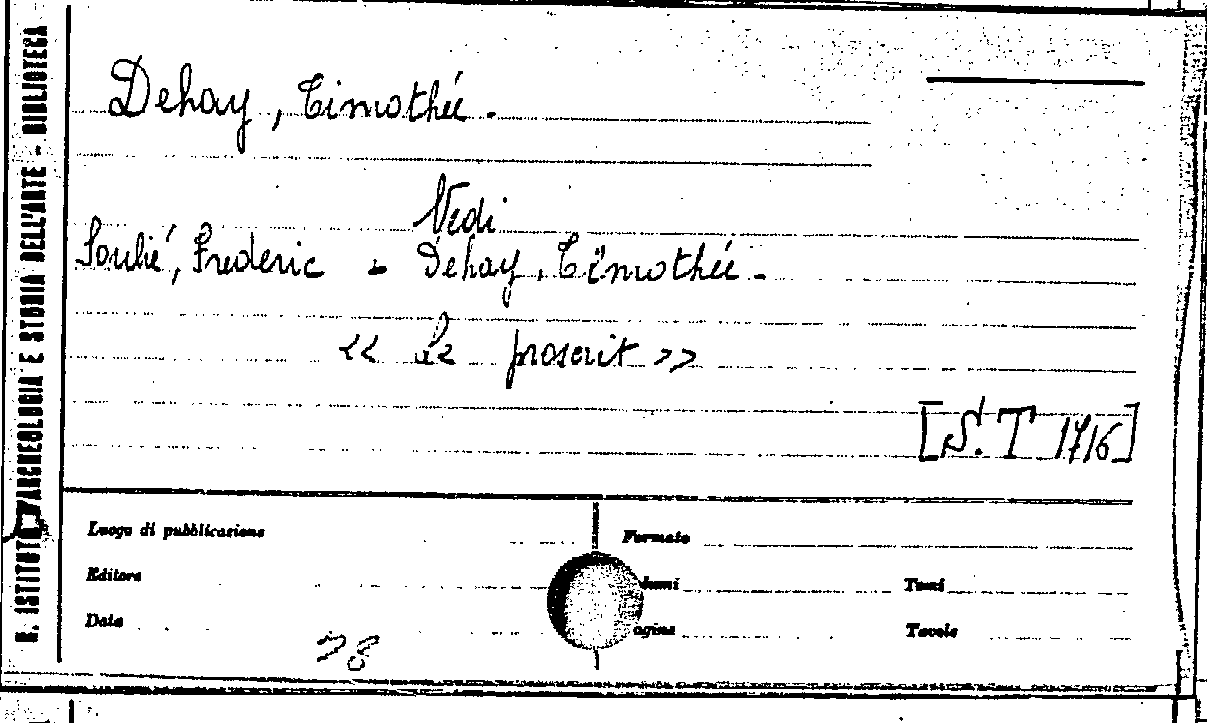 R. ISTITUTO D'ARCHEOLOGIA E STORIA DELL'ARTE - BIBLIOTECA
Dehay, Timothée.
Vedi
Soulié, Frederic - Dehay, Timothée.
<< Le proscrit >>
[S. T 1716]
Luogo di pubblicazione
Formato
Editore
lumi
Tomi
Data
agine
Tavole
78